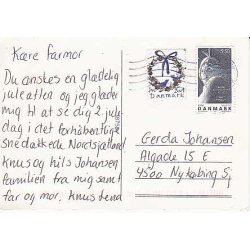 Kære farmor
Du ønskes en glædelig
juleaften og jeg glæder
mig til at se dig 2 jule
dag i det forhåbentlige
snedækkede Nordsjælland
Knus og hils Johansen
familien fra mig samt
far og mor. Knus
Danmark
DANMARK
Gerda Johansen
Algade 15 E
4500 Nykøbing Sj